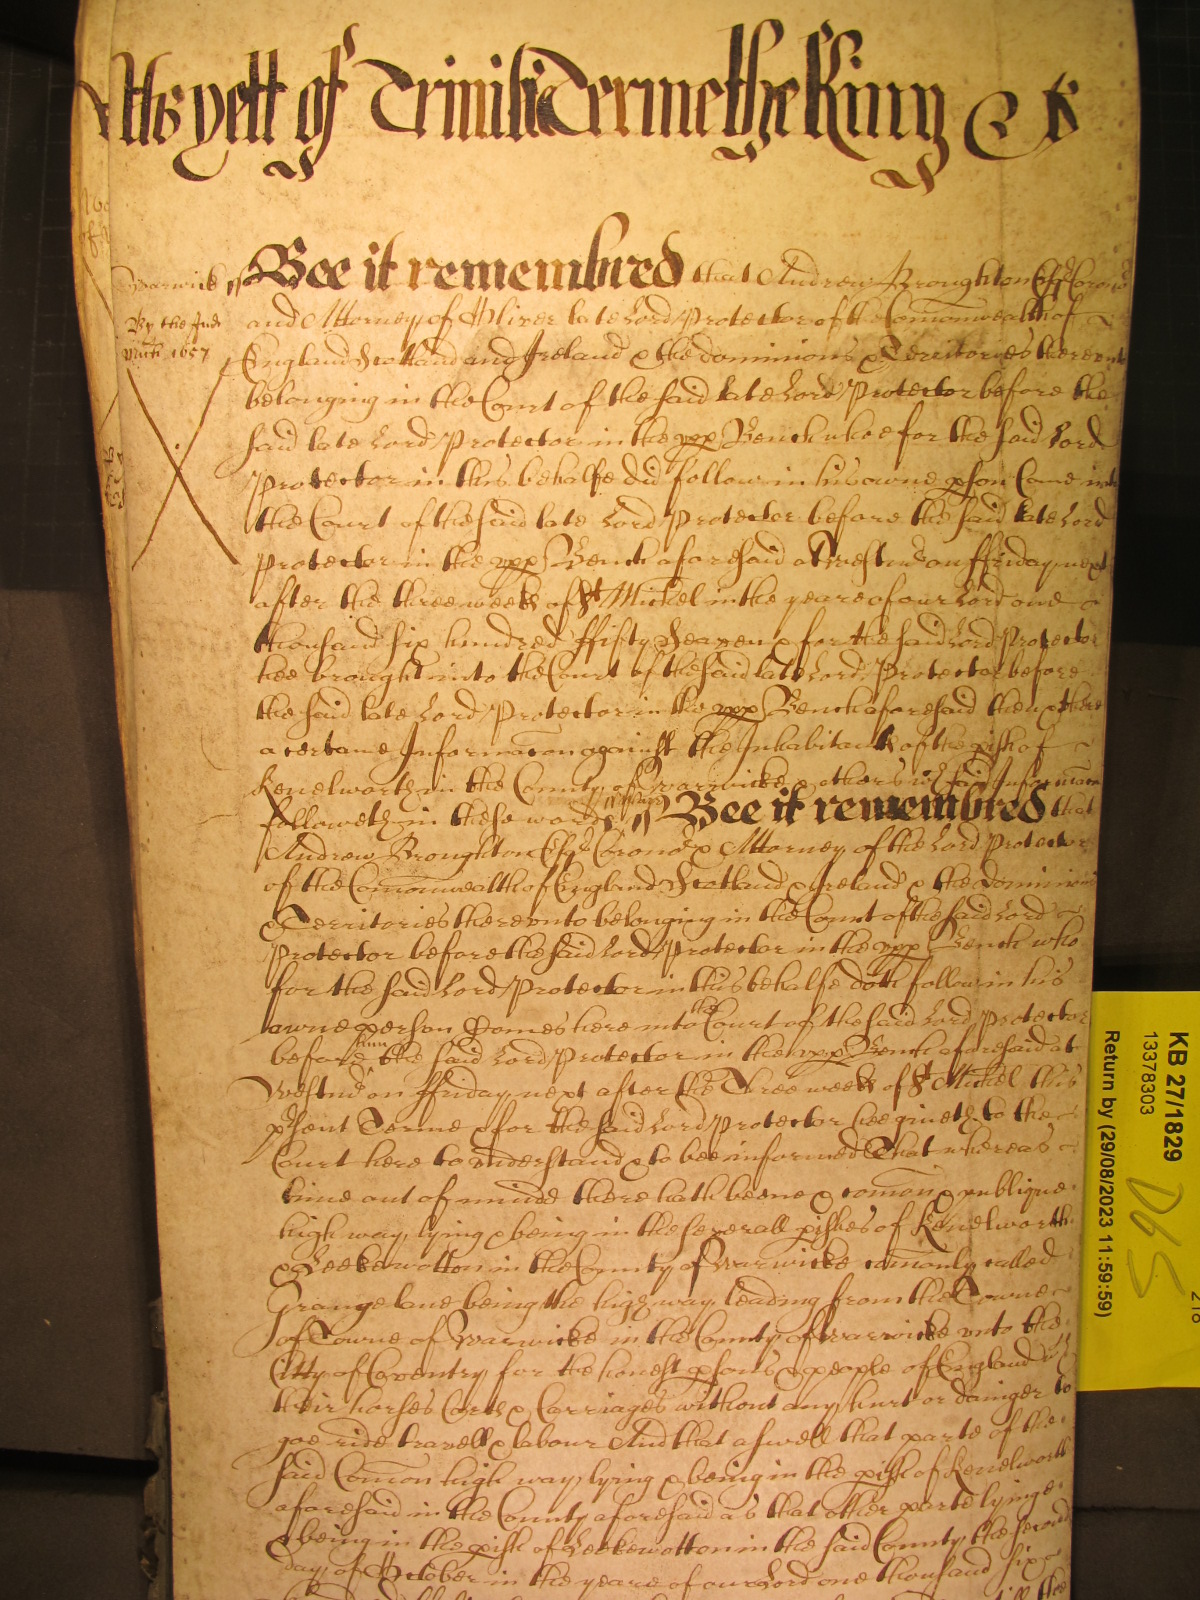 As yett of Trinitie Terme the King &c
Warwick ss Bee it remembred that Andrew Broughton Esqr Coroner
By the Inds
Mich 1657
and Attorney of Oliver late Lord Protector of the Comonwealth of
England Scotland and Ireland & the dominions & Territories thereunto
belonging in the Court of the said late Lord Protector before the
said late Lord Protector in the vpp Bench whoe for the said Lord
Protector in this behalfe did follow in his owne pson Came into
the Court of the said late Lord Protector before the said late Lord
Protector in the vpp Bench aforesaid at Westmr on ffriday next
after the three weekes of St Michel in the yeare of our Lord one
thousand six hundred ffifty Seaven & for the said Lord Protector
hee brought into the Court of the said late Lord Protector before
the said late Lord Protector in the vpp Bench aforesaid then & there
a certaine Informacon against the Inhabitants of the pish of
Kenelworth in the County of Warwicke & others wch said Informacon
followeth in these words ss Warr ss Bee it remembred that
Andrew Broughton Esqr Coroner & Attorney of the Lord Protector
of the Comonwealth of England Scotland & Ireland & the dominions
& Territories thereunto belonging in the Court of the said Lord
Protector before the said Lord Protector in the vpp Bench who
for the said Lord Protector in this behalfe doth follow in his
owne person Comes here into the Court of the said Lord Protector
before the said Lord Protector in the vpp Bench aforesaid at
Westmr on ffriday next after the Three weekes of St Michel this
psent Terme & for the said Lord Protector hee giveth to the
Court here to vnderstand & to bee informed That whereas
time out of minde there hath beene a comon & publique
high way lying & being in the severall pishes of Kenelworth
& Leekewotton in the County of Warwicke comonly called
Grange lane being the high way leading from the Towne
of Towne of Warwicke in the County of Warwicke vnto the
Citty of Coventry for the honest psons & people of England wth
their horses Carts & Carriages without any hurt or dainger to
goe ride travell & labour And that aswell that parte of the
said Comon high way lying & being in the pish of Kenelworth
aforesaid in the County aforesaid as that other parte lyinge
& being in the pish of Leekewotton in the said County the second
day of October in the yeare of our Lord one thousand six
KB 27/1829
13378303
Return by (29/08/2023 11:59:59)
D65